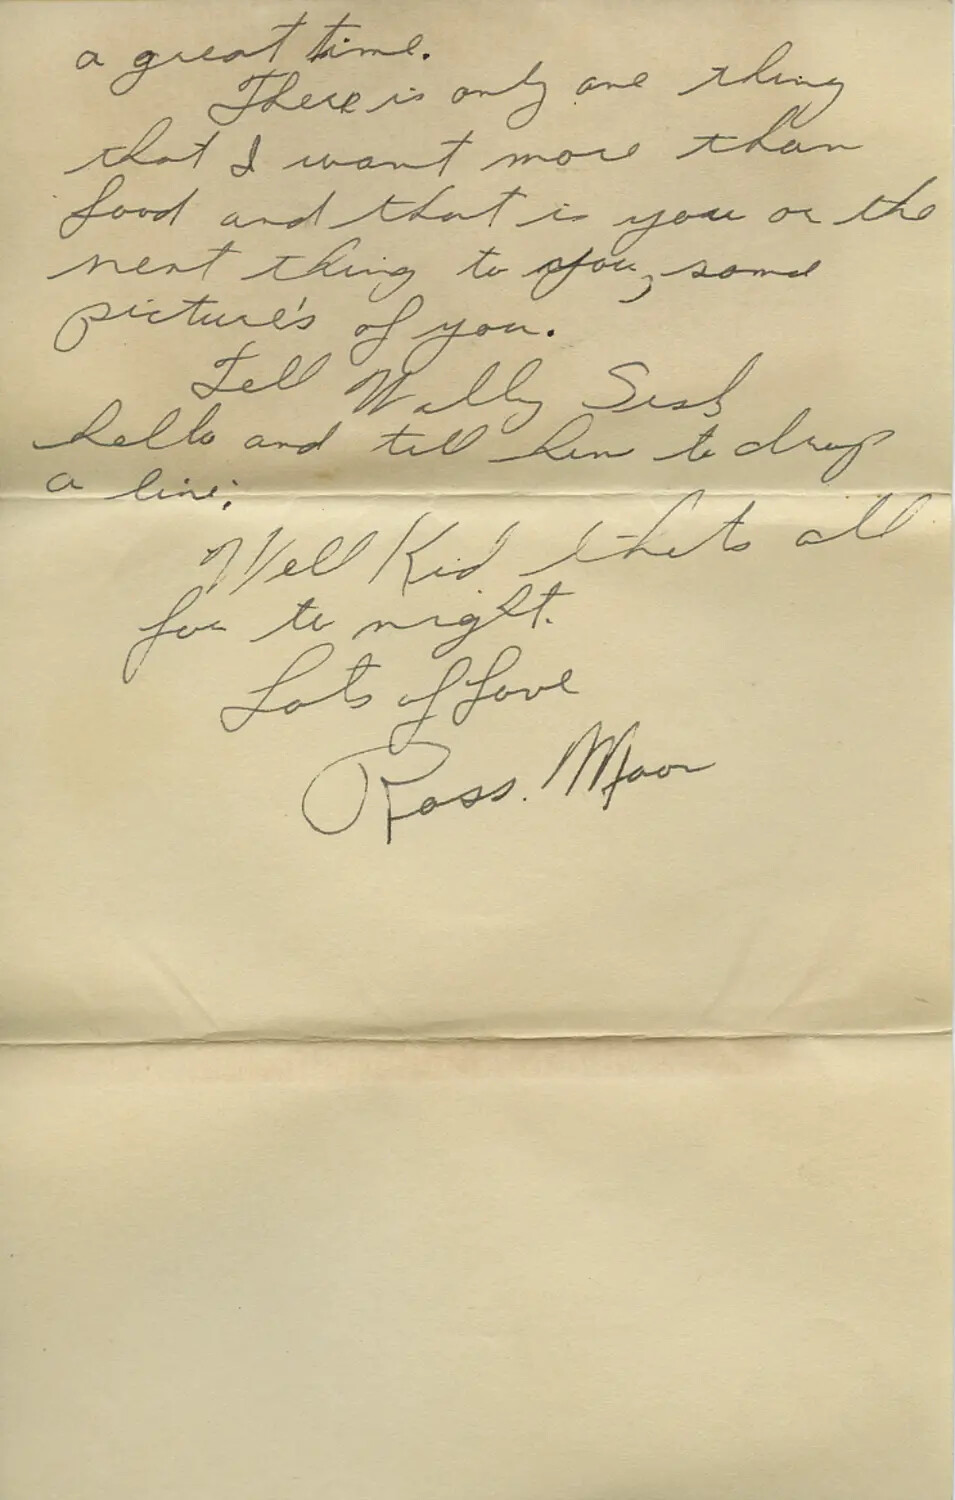 a great time.
There is only one thing
that I want more than
food and that is you or the
next thing to you, some
picture's of you.
Tell Wally
hello and tell him to drop
a line.
Well Kid thats all
for to night.
Lots of love
Ross. Moor